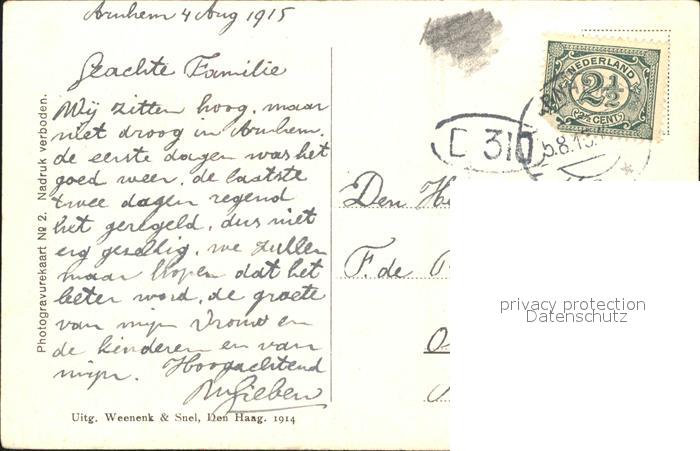 Arnhem 4 Aug 1915
Geachte Familie
Wij zitten hoog, maar
niet droog in Arnhem.
de eerste dagen was het
goed weer. de laatste
twee dagen regend
het geregeld, dus niet
erg gezellig, we zullen
maar hopen dat het
beter word, de groete
van mijn Vrouw en
de kinderen en van
mijn. Hoogachtend
Gieben
Uitg. Weenenk & Snel, Den Haag. 1914
Photogravurekaart No 2. Nadruk verboden.
NEDERLAND
2½
(2½ CENT)
D 310
5.8.15
Den H
F. de
privacy protection
Datenschutz